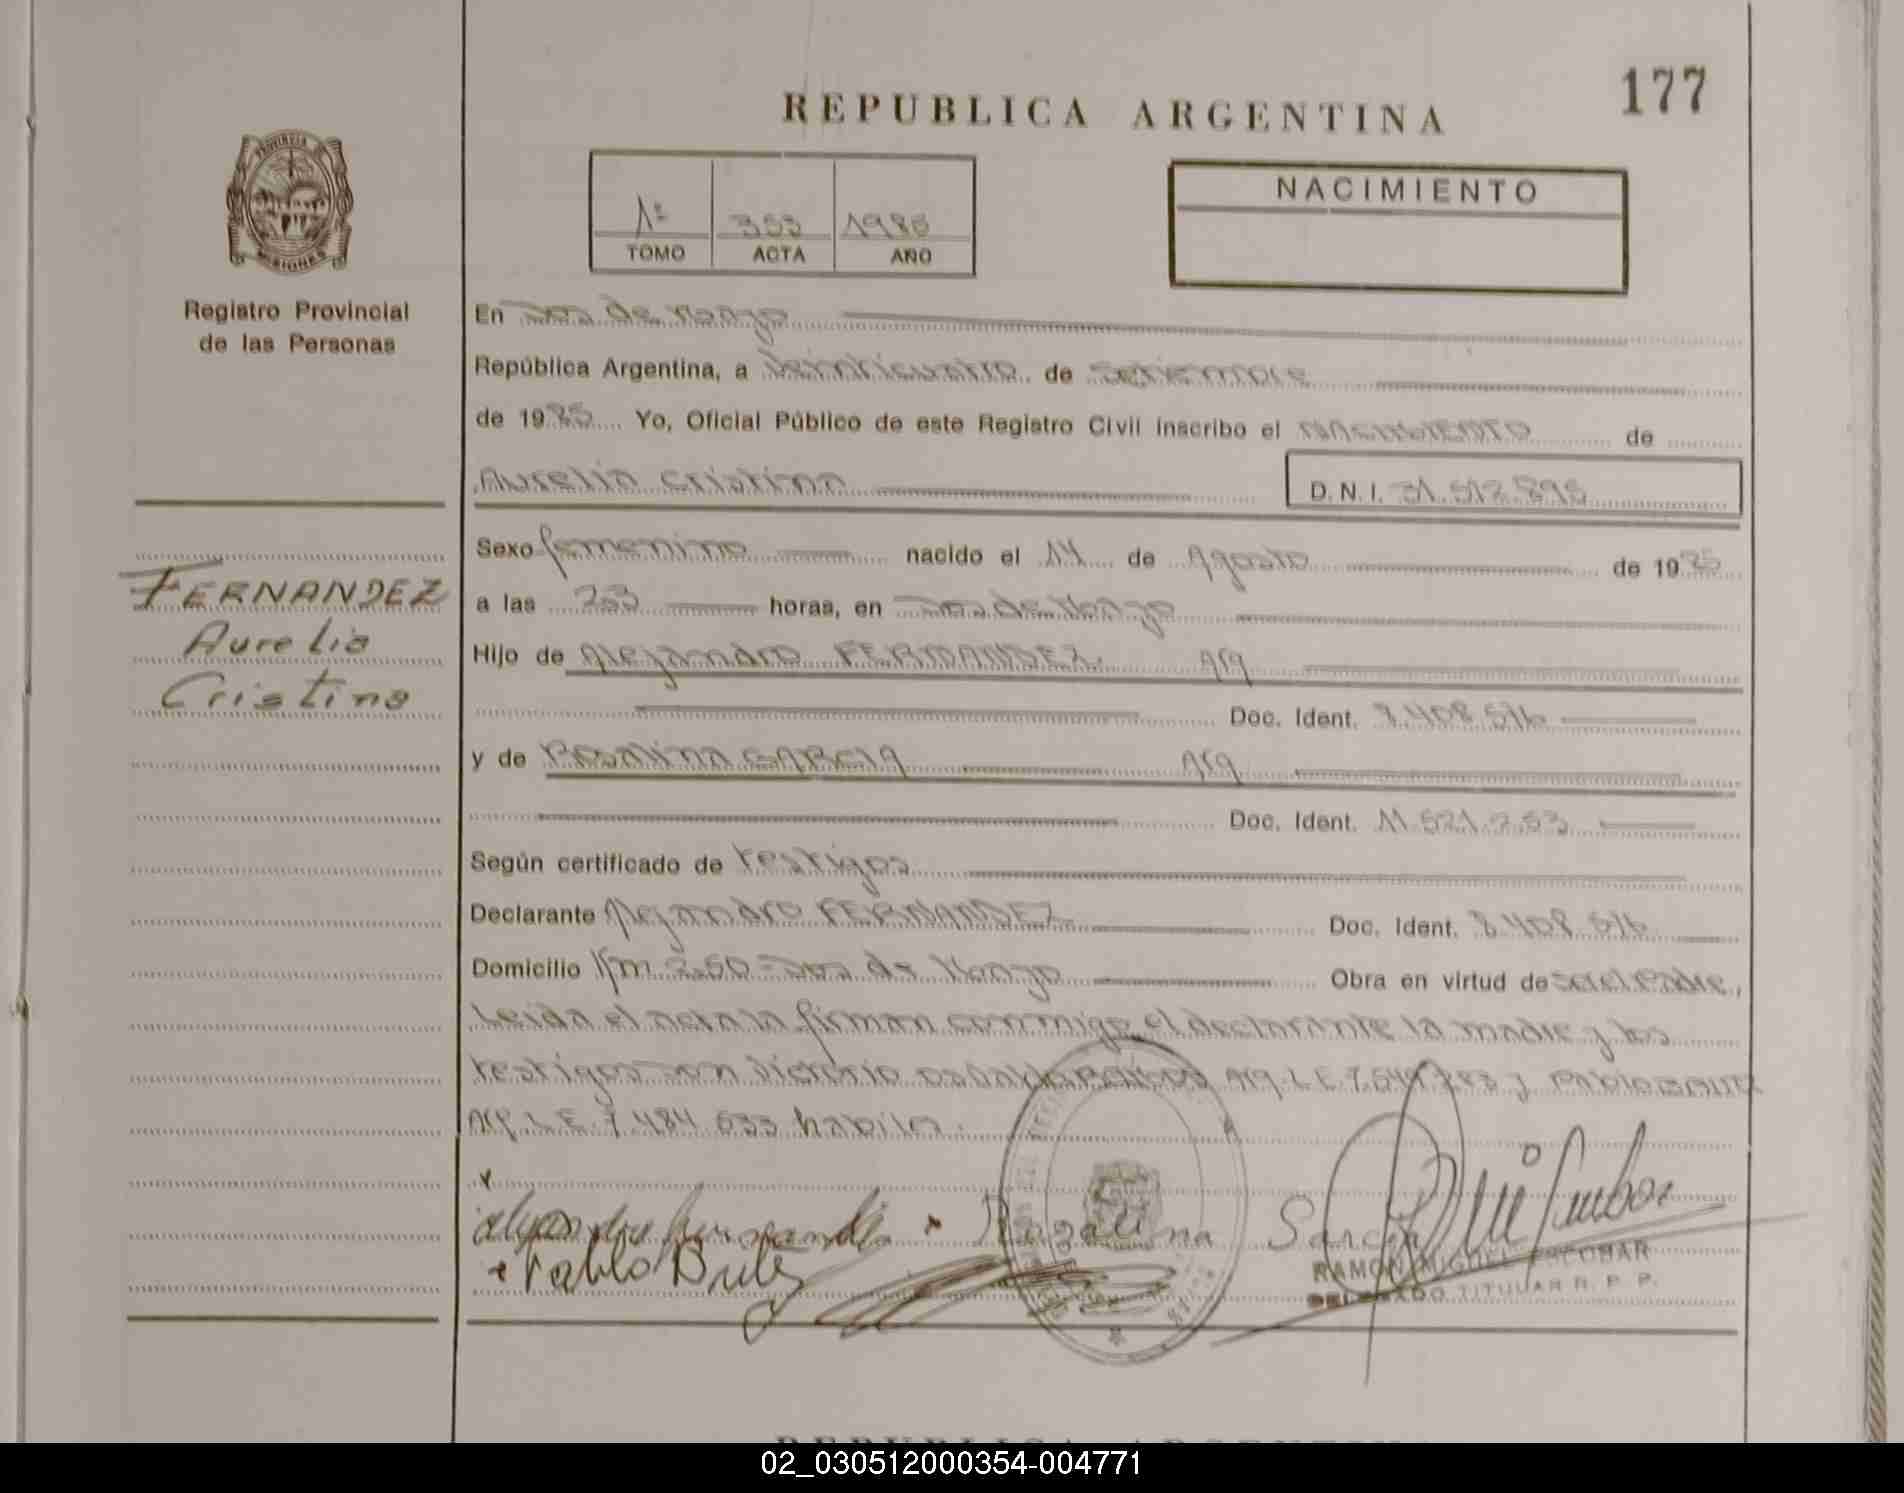 177
REPUBLICA ARGENTINA
PROVINCIA DE MISIONES
Registro Provincial
de las Personas
1º 353 1985
TOMO ACTA AÑO
NACIMIENTO
En Dos de Mayo
República Argentina, a Veinticuatro de Setiembre
de 1985 Yo, Oficial Público de este Registro Civil inscribo el NACIMIENTO de
Aurelia Cristina
D.N.I. 31.512.895
Sexo femenino nacido el 14 de Agosto de 1985
a las 23 horas, en Dos de Mayo
FERNANDEZ
Aurelia
Cristina
Hijo de Alejandro FERNANDEZ Arg
Doc. Ident. 8.408.576
y de Rosalina GARCIA Arg
Doc. Ident. 11.521.253
Según certificado de testigos
Declarante Alejandro FERNANDEZ Doc. Ident. 8.408.576
Domicilio Km 250 - Dos de Mayo Obra en virtud de ser el Padre,
Leida el acta la firman conmigo el declarante la madre y los
testigos son Victorio Arg. L.E. 7.549.783 y Pablo
Arg. L.E. 7.484.633 habiles.
Rosalina Garcia
Pablo
RAMON MIGUEL ESCOBAR
DELEGADO TITULAR R. P. P.
REPUBLICA ARGENTINA
02_030512000354-004771